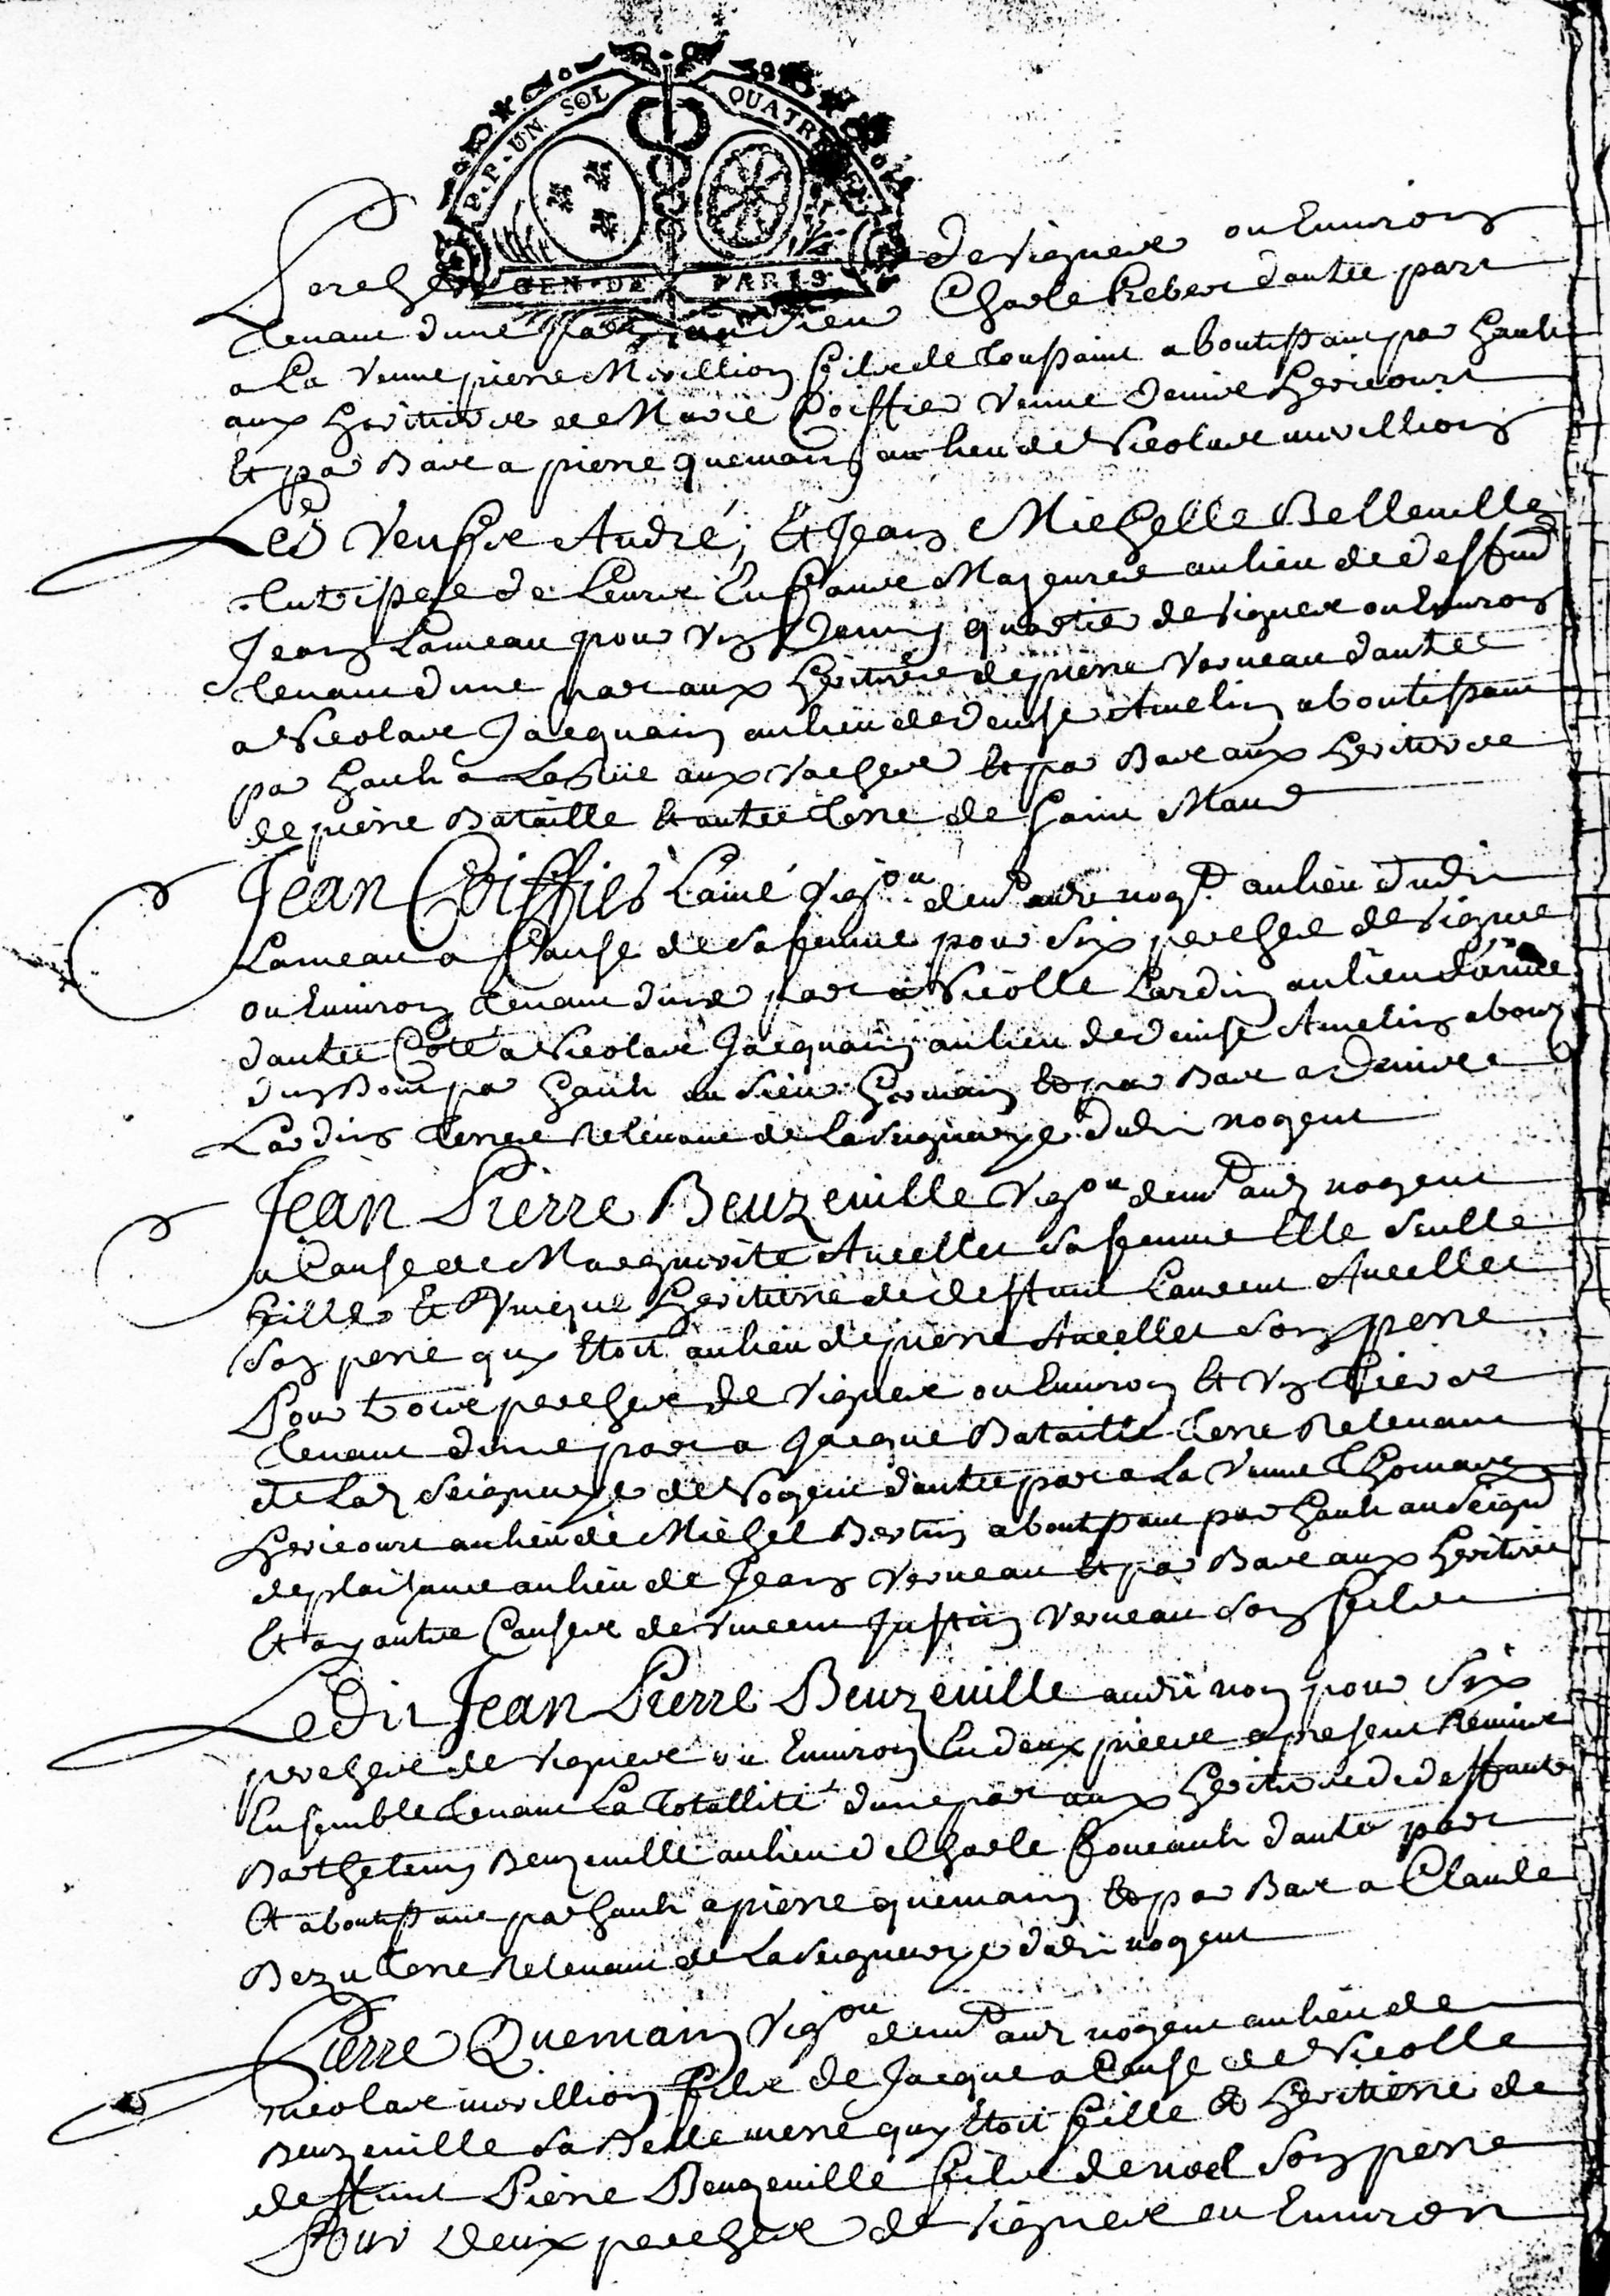 P. P. UN SOL QUATRE
GEN. DE PARIS
Perches de vignes ou Environ
tenant d'une part au sieur Charle hebert d'autre part
a La veuve pierre Morillion fils de Toussaint aboutissant par hault
aux heritiers de Marie Coiffier veuve Denis hericourt
Et par Bas a pierre quemain au lieu de Nicolas morillion
Les Veufve André, Et Jean Michelle Belleville
tutrisse de Leurs Enfans Mineures au lieu de deffund
Jean Lameau pour Un Demy quartier de vignes ou Environ
tenant d'une part aux heritiers de pierre Verneau d'autre
a Nicolas Jacquain au lieu de denise Amelin aboutissant
par hault a La rüe aux vaches Et par Bas aux heritiers
de pierre Bataille Et autre terre de saint Maur
Jean Coiffier L'ainé vigon demt audt nogt au lieu dudit
Lameau a Cause de sa femme pour Six perches de vigne
ou Environ tenant d'une part a Nicolle Lardin au lieu
d'autre Coté a Nicolas Jacquain au lieu de denise Amelin about
d'un Bout par hault au sieur Germain Et par Bas a Denise
Lardin terres Relevant de la seigneurye dudit nogent
Jean Pierre Beuzeville vigon demt audt nogent
a Cause de Marguerite Ancellet sa femme Elle Seulle
fille Et Unique heritiere de deffunt Laurent Ancellet
son pere quy Etoit au lieu de pierre Ancellet son pere
Pour trois perches de vignes ou Environ Et Un tiers
tenant d'une part a Jacque Bataille terre Relevant
de Lad seigneurye de Nogent d'autre part a La veuve Thomas
hericourt au lieu de Michel Bertin aboutissant par hault au seigr
de plaisance au lieu de Jean Verneau Et par Bas aux heritiers
Et ayant Causes de Vincent Justin Verneau son fils
Ledit Jean Pierre Beuzeville audit nom pour Six
perches de vignes ou Environ En deux pieces a present Reunies
Ensemble tenant La totallité d'une part aux heritiers de deffunt
Barthelemy Beuzeville au lieu de Charle foucault d'autre part
Et aboutissant par hault a pierre quemain Et par Bas a Claude
Bezu terre Relevant de La seigneurye dudit nogent
Pierre Quemain Vigon demt audt nogent au lieu de
nicolas morillion fils de Jacque a Cause de Nicolle
Beuzeville sa Belle mere quy Etoit fille Et heritiere de
deffunt Pierre Beuzeville fils de noel son pere
Pour deux perches de vignes ou Environ